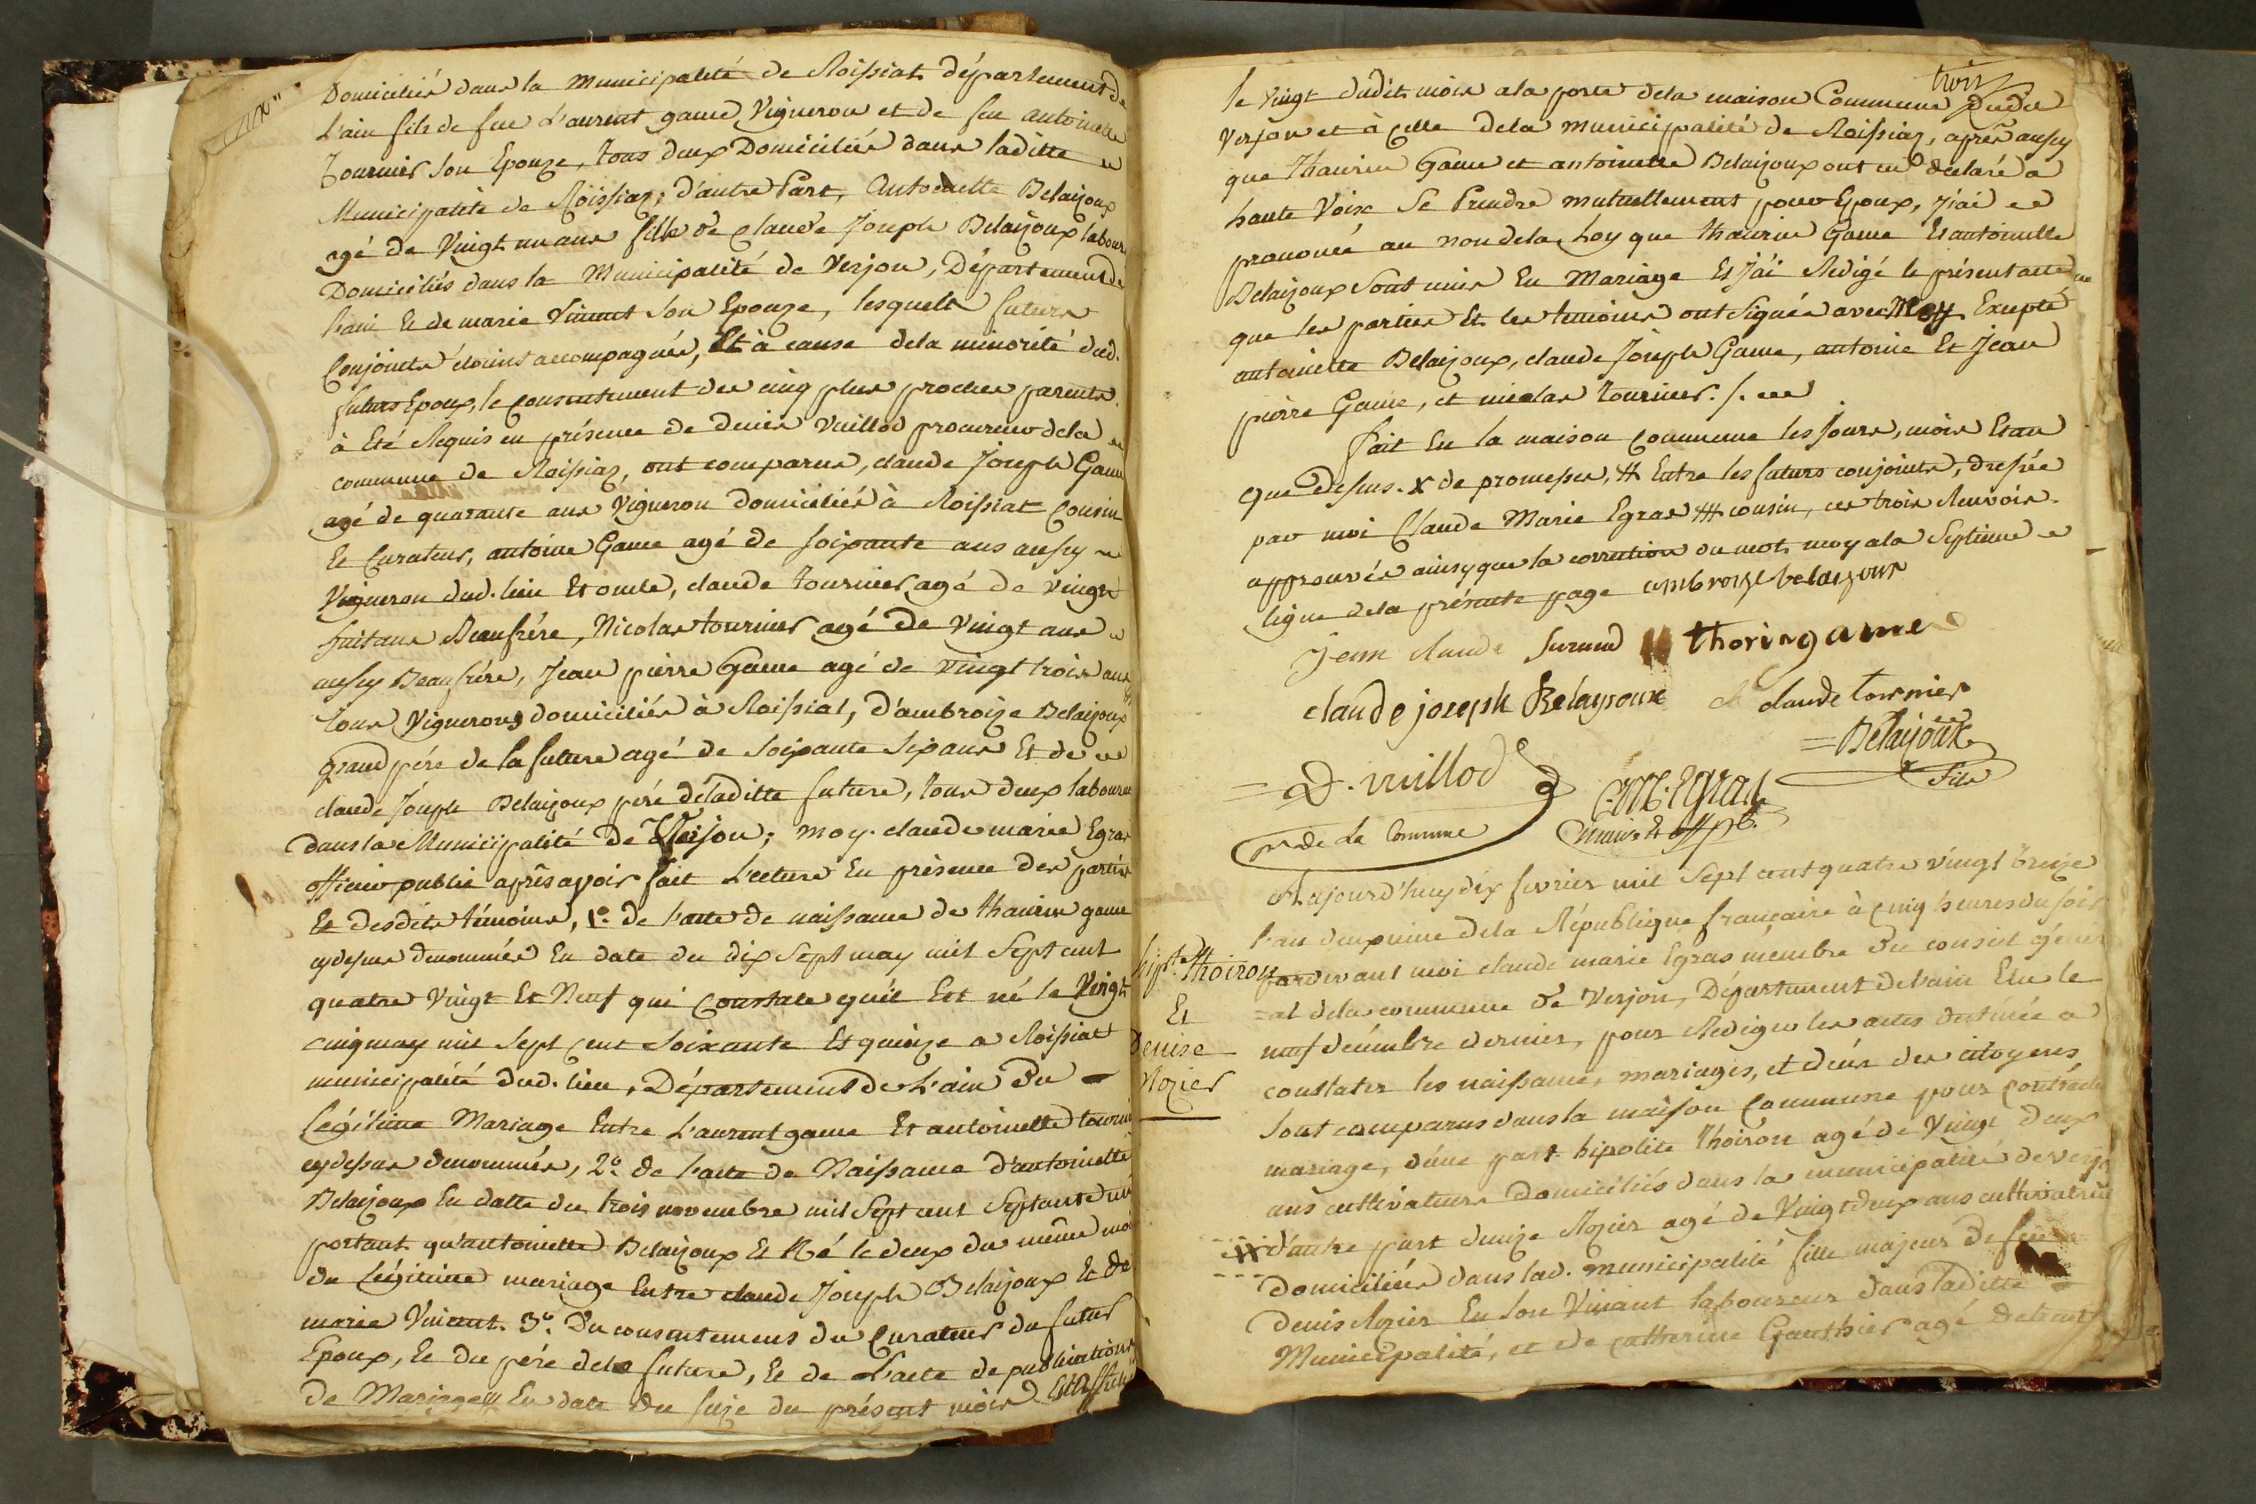 Domiciliés dans la municipalité de Roissiat département de
L'ain fils de feu L'aurent game Vigneron et de feu antoinette
Tournier son Epouze, tous deux Domiciliés dans laditte
Municipalité de Roissiaz; d'autre Part, Antoinette Belaijoux
agé de Vingt un ans fille de Claude Joseph Belaijoux labour
Domiciliés dans la Municipalité de Verjon, Département de
l'ain Et de marie Vincent son Epouze, lesquels futurs
Conjoints étoint accompagnés, Et à cause dela minorité dud.
futurs Epoux, le consentement des cinq plus proches parents
à Eté Requis en présence de denis Vuillod procureur dela
commune de Roissiaz, ont comparus, claude Joseph Game
agé de quarante ans Vigneron domiciliés à Roissiat Cousin
Et Curateur, antoine Game agé de soixante ans aussy
Vigneron dud. lieu Et oncle, claude tournier agé de vingt
huit ans Beaufrére, Nicolas tournier agé de Vingt ans
aussy Beaufrére, Jean pierre Game agé de vingt trois ans
tous Vignerons domiciliés à Roissiat, d'ambroize Belaijoux
grand pére de la future agé de soixante six ans Et de
claude Joseph Belaijoux péré de laditte future, tous deux laboureur
dans la Municipalité de Verjon; moy. claude marie Egras
officier public aprés avoir fait L'ecture En présence des parties
Et desdits témoins, 1.º de l'acte de naissance de thaurin game
cydessus denommés En date du dix sept may mil sept cent
quatre Vingt Et Neuf qui constate qu'il Est né le Vingt
cinq may mil sept cent soixante Et quinze a Roissiat
municipalité dud. lieu, Département de L'ain Du
Légitime Mariage Entre L'aurent game Et antoinette tourni
cydessus denommés, 2.º de l'acte de Naissance d'antoinette
Belaijoux En datte du trois novembre mil sept cent septante un
portant qu'antoinette Belaijoux Et Né le deux du même moi
du Légitime mariage Entre claude Joseph Belaijoux Et de
marie Vincent. 3.º Du consentement du Curateur du futur
Epoux, Et du péré dela future, Et de L'acte de publications
de Mariage En date du seize du présent mois Et affiché
trois
le vingt dudit mois a la porte dela maison Commune dudit
Verjon et à celle dela municipalité de Roissiaz, aprés aussy
que thaurin Game et antoinette Belaijoux ont eu déclaré a
haute Voix se Prendre mutuellement pour Epoux, j'ai
prononcé au nom dela Loy que thaurin Game Et antoinette
Belaijoux sont unis En Mariage Et j'ái Redigé le présent acte
que les parties Et les temoins ont signés avec Moy Excepté
antoinette Belaijoux, claude Joseph Game, antoine Et Jean
pierre Game, et nicolas tournier. /.
fait En la maison commune les Jours, mois Et an
que dessus. X de promesses, # Entre les futurs conjoints, dressée
par moi Claude Marie Egras ## cousin, ces trois Renvois
approuvés ainsy que la correction du mot moy ala Septieme
ligne dela présente page ambroize belaijoux
Jean claude Turand thorin game
claude joseph Belayoux claude tornier
= Belaijoux
fils
= D. vuillod
pr. de la Commune
C. M. Egras
Maire Et off. p.
Aujourd'huy dix fevrier mil sept cent quatre vingt treize
l'an deuxieme dela République française à cinq heures du soir
pardevant moi claude marie Egras membre du conseil géner
=al dela commune de Verjon, Département de l'ain Elu le
neuf décembre dernier, pour Rediger les actes destinés a
constater les naissance, mariages, et décés des citoyens
sont comparus dans la maison Commune pour contracter
mariage, d'une part hipolite thoiron agé de Vingt deux
ans cultivateurs domiciliés dans la municipalité de verjon
# d'autre part denize Rozier agé de Vingt deux ans cultivatrice
domiciliées dans lad. municipalité fille majeur de feu
denis Rozier En son Vivant laboureur dans laditte
Municipalité, et de catherine Gauthier agé de
hipte. Thoiron
Et
denise
Rozier